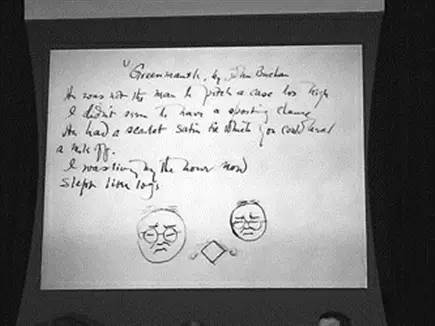 "Greenmantle, by John Buchan
He was not the man to pitch a case too high
I didn't seem to have a sporting chance
He had a scarlet satin tie which you could read
a mile off.
I was living by the hour now
Slept like logs